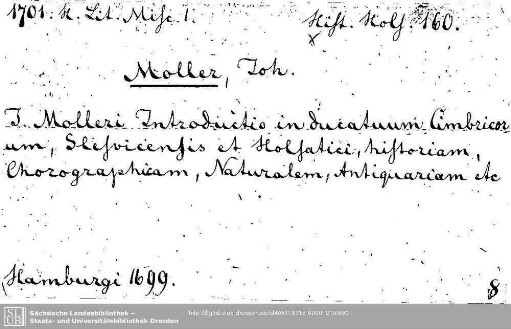 1701. H. Lit. Misc. 1.
Hist. Hols. 160.
x
Moller, Joh.
J. Molleri Introductio in ducatuum Cimbricor
um, Slesvicensis et Holsatici, historiam,
Chorographicam, Naturalem, Antiquariam etc
Hamburgi 1699.
8
SLUB
Sächsische Landesbibliothek –
Staats- und Universitätsbibliothek Dresden